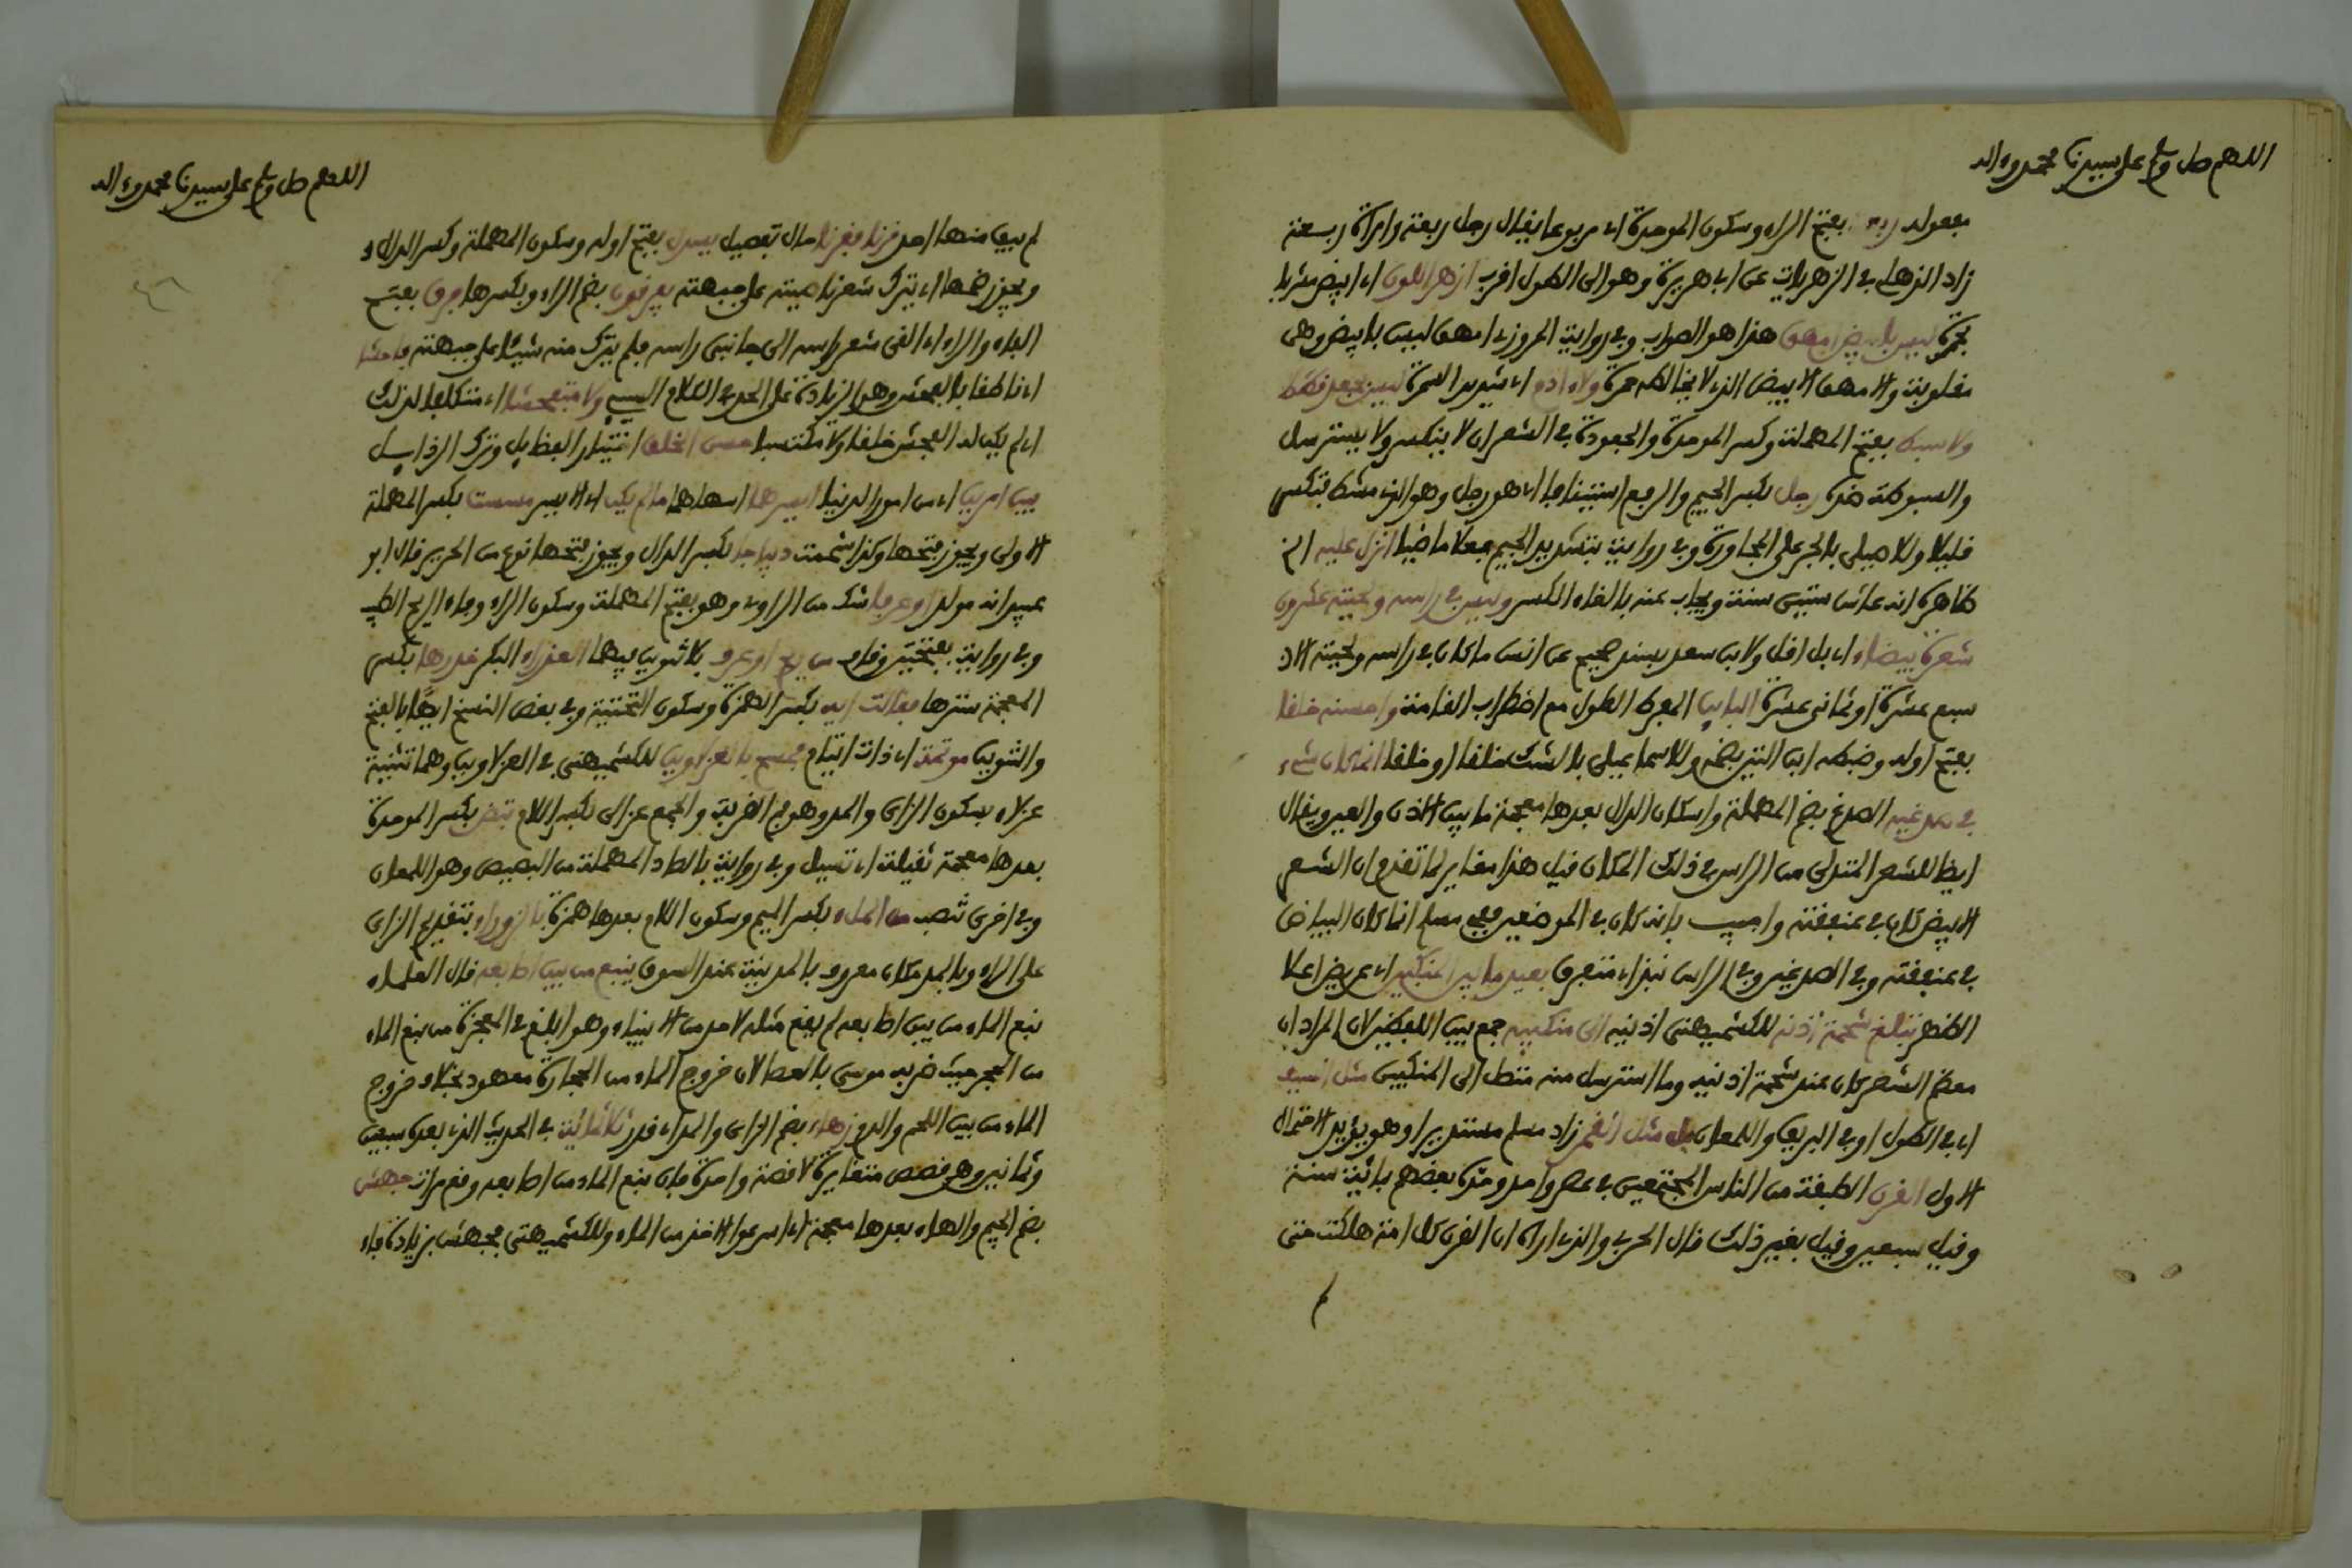 اللهم صل وسلم على سيدنا محمد وءاله
مفعوله ربعة بفتح الراء وسكون الموحدة اي مربوعا يقال رجل ربعة وامراة ربعة
زاد الذهلي في الزهريات عن ابي هريرة وهو الى الطول اقرب ازهر اللون اي ابيض مشربا
بحمرة ليس بابيض امهق هذا هو الصواب وفي رواية المروزي امهق ليس بابيض وهي
مقلوبة والامهق الابيض الذي لا يخالطه حمرة ولا ءادم اي شديد السمرة ليس بجعد قطط
ولا سبط بفتح المهملة وكسر الموحدة والجعودة في الشعر ان لا ينكسر ولا يسترسل
والسبوطة ضده رجل بكسر الجيم والرفع استينافا اي هو رجل وهو الذي مشط فتكسر
قليلا وللاصيلي بالجر على المجاورة وفي رواية بتشديد الجيم فعلا ماضيا انزل عليه الخ
ظاهره انه عاش ستين سنة ويجاب عنه بالغاء الكسر وليس في راسه ولحيته عشرون
شعرة بيضاء اي بل اقل ولابن سعد بسند صحيح عن انس ما كان في راسه ولحيته الا
سبع عشرة او ثماني عشرة الباين المفرط الطول مع اضطراب القامة واحسنه خلقا
بفتح اوله وضبطه ابن التين بضم وللاسماعيلي بالشك خلقا او خلقا انما كان شيء
في صدغيه الصدغ بضم المهملة واسكان الدال بعدها معجمة ما بين الاذن والعين ويقال
ايضا للشعر المتدلى من الراس في ذلك المكان قيل هذا مغاير لما تقدم ان الشعر
الابيض كان في عنفقته واجيب بانه كان في الموضعين ففي مسلم انما كان البياض
في عنفقته وفي الصدغين وفي الراس نبذ اي متفرق بعيد ما بين المنكبين اي عريض اعلا
الظهر تبلغ شحمة اذنه للكشميهني اذنيه الى منكبيه جمع بين اللفظين لان المراد ان
معظم الشعر كان عند شحمة اذنيه وما استرسل منه متصل الى المنكبين مثل السيف
اي في الطول او في البريق واللمعان بل مثل القمر زاد مسلم مستديرا وهو يؤيد الاحتمال
الاول القرن الطبقة من الناس المجتمعين في عصر واحد وحده بعضهم بمائة سنة
وقيل سبعين وقيل بغير ذلك قال الحربي والذي اراه ان القرن كل امة هلكت حتى
اللهم صل وسلم على سيدنا محمد وءاله
لم يبق منها احد قرنا فقرنا حال تفصيل يسدل بفتح اوله وسكون المهملة وكسر الدال
ويجوز ضمها اي يترك شعر ناصيته على جبهته يفرقون بضم الراء وبكسرها فرق بفتح
الفاء والراء اي القى شعر راسه الى جانبي راسه فلم يترك منه شيئا على جبهته فاحشا
اي ناطقا بالفحش وهو الزيادة على الحد في الكلام السيء ولا متفحشا اي متكلفا لذلك
اي لم يكن له الفحش خلقا ولا مكتسبا حسن الخلق اختيار الفضايل وترك الرذايل
بين امرين اي من امور الدنيا ايسرهما اسهلهما ما لم يكن اي الايسر مسست بكسر المهملة
الاولى ويجوز فتحها وكذا شممت ديباجا بكسر الدال ويجوز فتحها نوع من الحرير قال ابو
عبيد انه مولد او عرفا شك من الراوي وهو بفتح المهملة وسكون الراء وفاء الريح الطيب
وفي رواية بفتحتين وقاف من ريح او عرف بلا تنوين فيهما العذراء البكر خدرها بكسر
المعجمة سترها فقالت ايه بكسر الهمزة وسكون التحتية وفي بعض النسخ ايها بالفتح
والتنوين موتمة اي ذات ايتام فمسح بالعزلاوين للكشميهني في العزلاوين وهما تثنية
عزلاء بسكون الزاي والمد وهو فم القربة والجمع عزالى بكسر اللام تبض بكسر الموحدة
بعدها معجمة ثقيلة اي تسيل وفي رواية بالصاد المهملة من البصيص وهو اللمعان
وفي اخرى تنصب من الملء بكسر الميم وسكون اللام بعدها همزة بالزوراء بتقديم الزاي
على الراء وبالمد مكان معروف بالمدينة عند السوق ينبع من بين اصابعه قال العلماء
نبع الماء من بين اصابعه لم يقع مثله لاحد من الانبياء وهو ابلغ في المعجزة من نبع الماء
من الحجر حيث ضربه موسى بالعصا لان خروج الماء من الحجارة معهود بخلاف خروج
الماء من بين اللحم والدم زهاء بضم الزاي والمد اي قدر ثلاثمائة في الحديث الذي بعده سبعين
وثمانين وهو قصص متغايرة لا قصة واحدة فان نبع الماء من اصابعه وقع مرات جهش
بضم الجيم والهاء بعدها معجمة اي اسرعوا لاخذ من الماء وللكشميهني فجهش بزيادة فاء